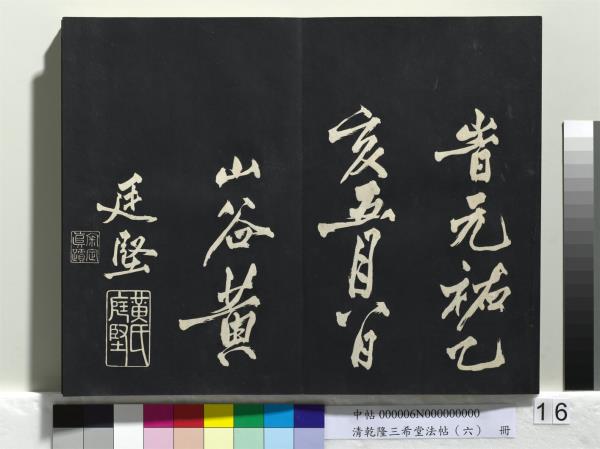 旹元祐乙
亥五月八日
山谷黃
廷堅
黃氏庭堅
中帖 000006N000000000
清乾隆三希堂法帖（六） 冊
16